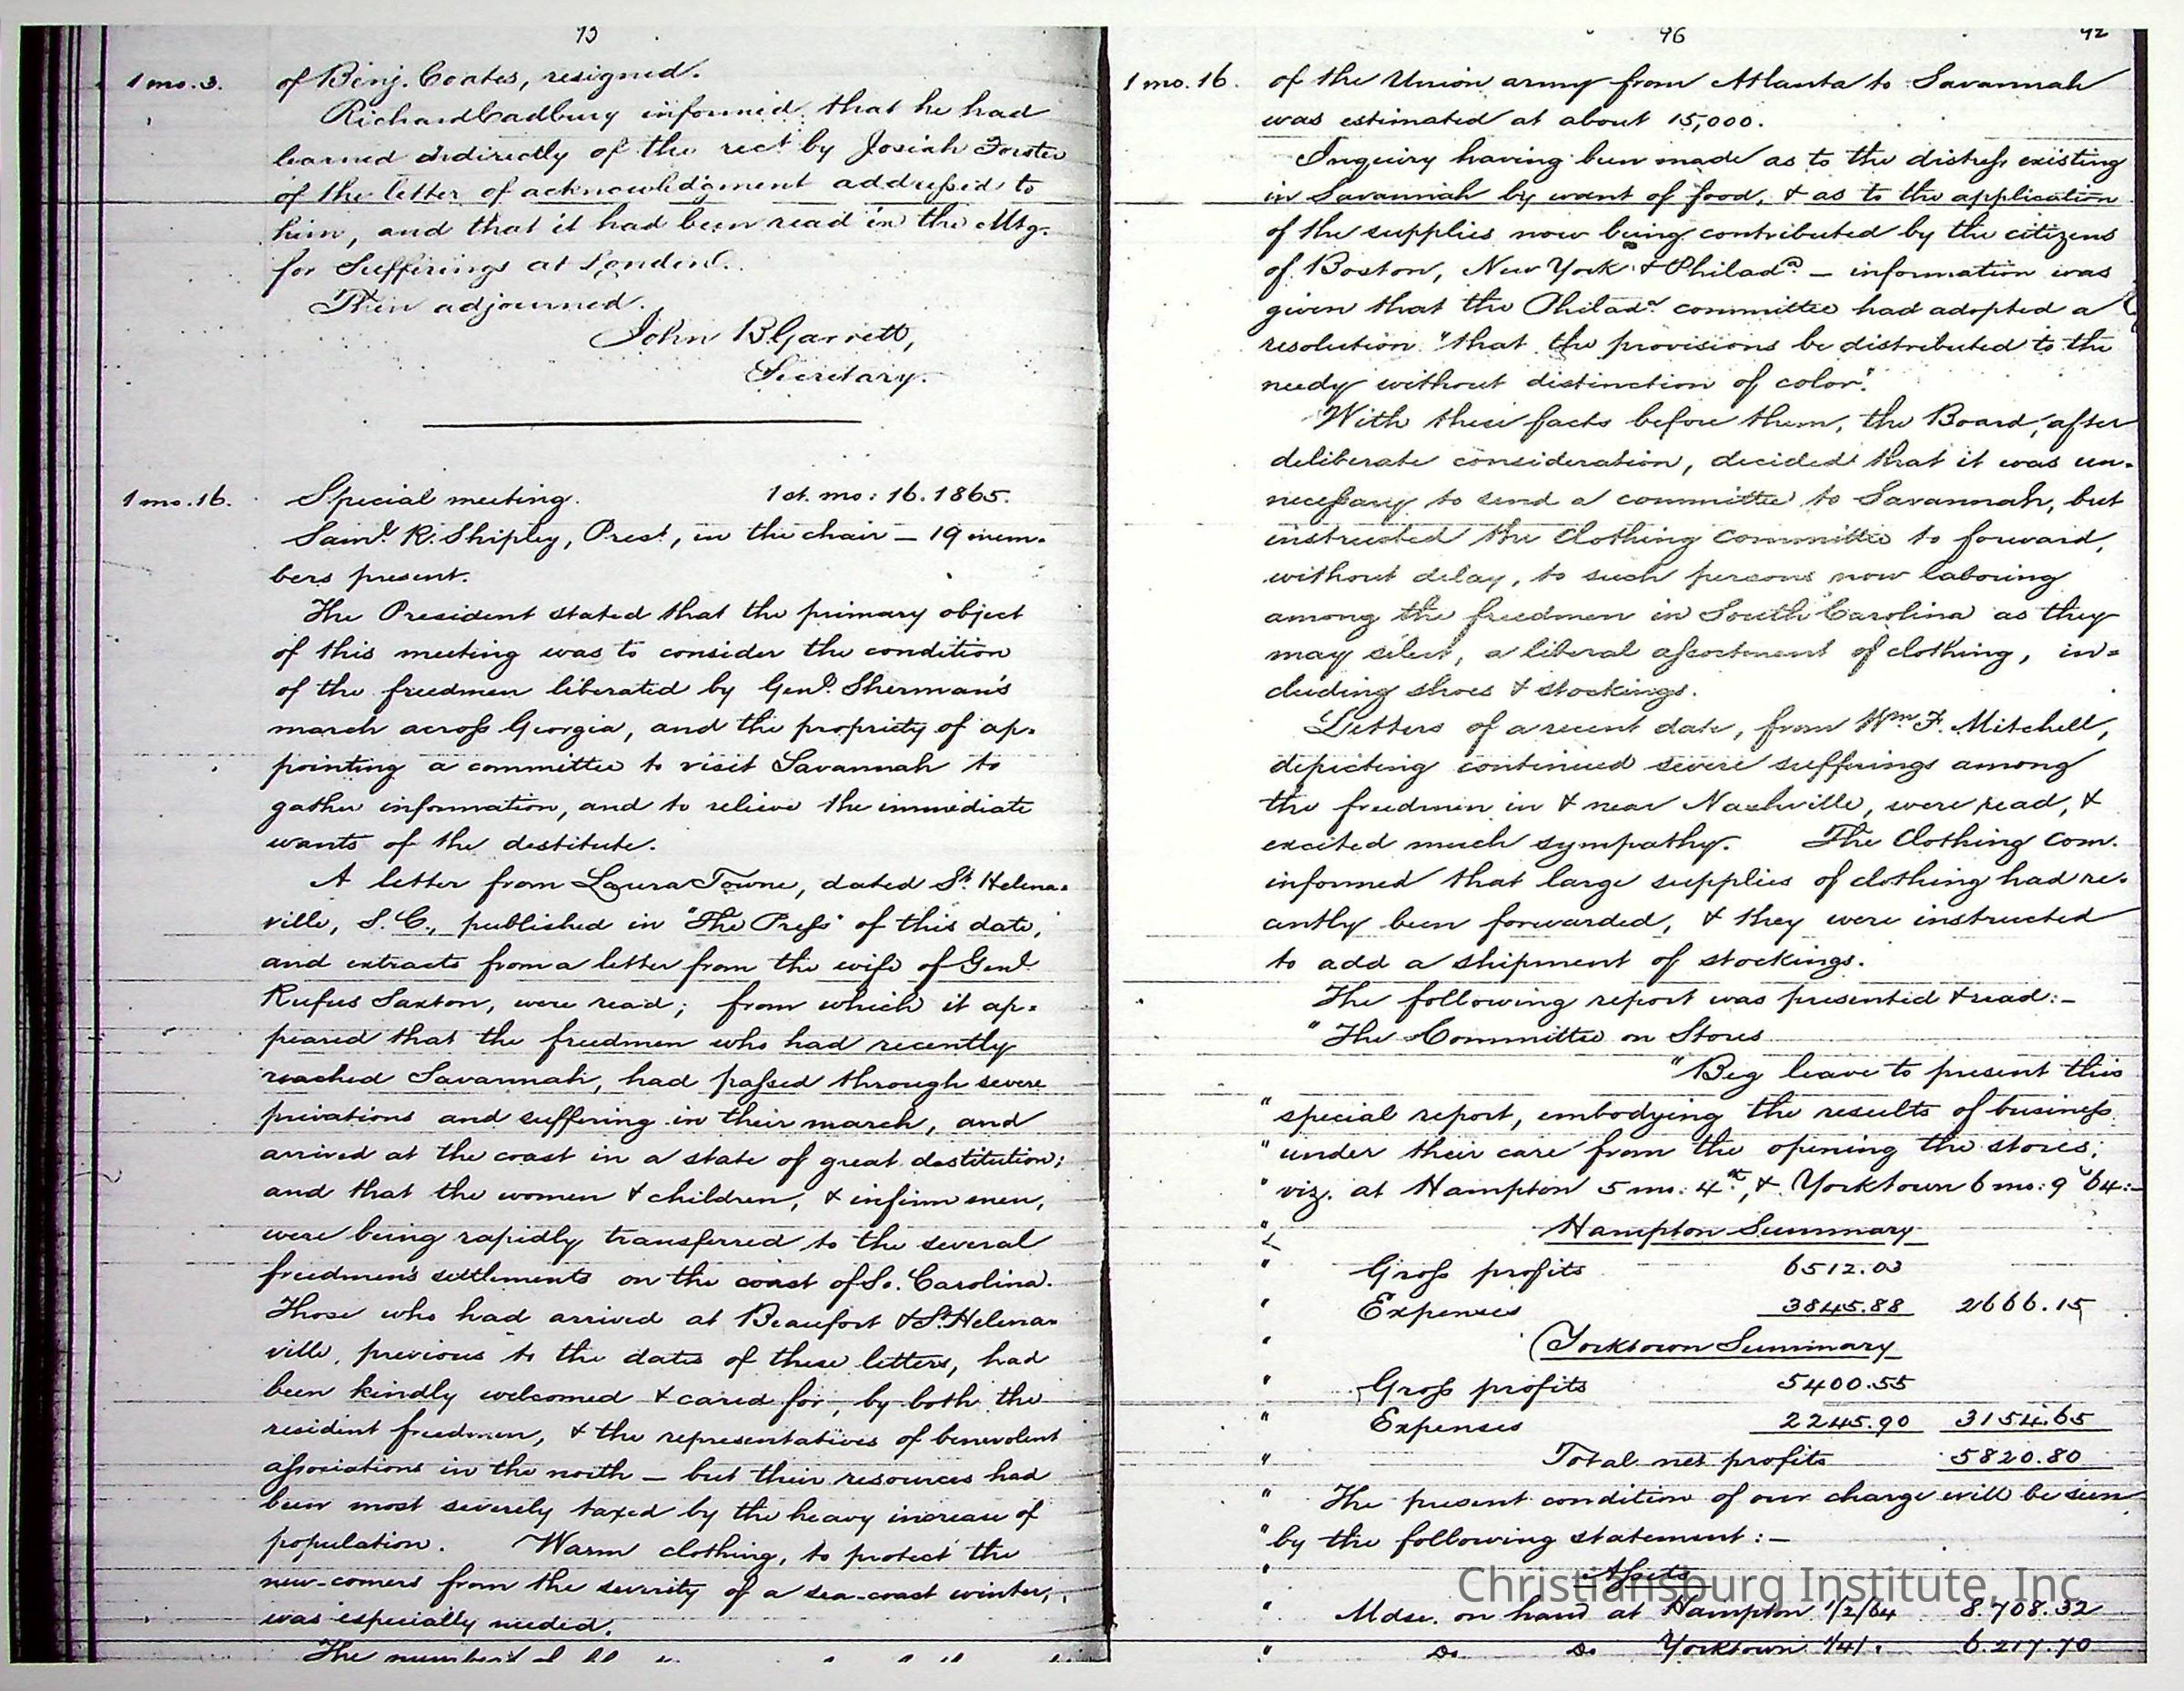 1 mo. 3.
of Benj. Coates, resigned.
Richard Cadbury informed that he had
learned indirectly of the rect by Josiah Forster
of the letter of acknowledgment addressed to
him, and that it had been read in the Mtg.
for Sufferings at London.
Then adjourned.
John B Garrett,
Secretary.
1 mo. 16.
Special meeting. 1st. mo: 16. 1865.
Saml. R. Shipley, Prest, in the chair — 19 mem-
bers present.
The President stated that the primary object
of this meeting was to consider the condition
of the freedmen liberated by Genl. Sherman's
march across Georgia, and the propriety of ap-
pointing a committee to visit Savannah to
gather information, and to relieve the immediate
wants of the destitute.
A letter from Laura Towne, dated St. Helena-
ville, S.C., published in "The Press" of this date,
and extracts from a letter from the wife of Genl.
Rufus Saxton, were read; from which it ap-
peared that the freedmen who had recently
reached Savannah, had passed through severe
privations and suffering in their march, and
arrived at the coast in a state of great destitution;
and that the women & children, & infirm men,
were being rapidly transferred to the several
freedmen's settlements on the coast of So. Carolina.
Those who had arrived at Beaufort & St. Helena-
ville, previous to the dates of these letters, had
been kindly welcomed & cared for, by both the
resident freedmen, & the representatives of benevolent
associations in the north — but their resources had
been most severely taxed by the heavy increase of
population. Warm clothing, to protect the
new-comers from the severity of a sea-coast winter,
was especially needed.
The number
96
1 mo. 16.
of the Union army from Atlanta to Savannah
was estimated at about 15,000.
Inquiry having been made as to the distress existing
in Savannah by want of food, & as to the application
of the supplies now being contributed by the citizens
of Boston, New York & Philada. — information was
given that the Philada. committee had adopted a
resolution "that the provisions be distributed to the
needy without distinction of color."
With these facts before them, the Board, after
deliberate consideration, decided that it was un-
necessary to send a committee to Savannah, but
instructed the Clothing Committee to forward,
without delay, to such persons now laboring
among the freedmen in South Carolina as they
may select, a liberal assortment of clothing, in-
cluding shoes & stockings.
Letters of a recent date, from Wm. F. Mitchell,
depicting continued severe sufferings among
the freedmen in & near Nashville, were read, &
excited much sympathy. The Clothing Com.
informed that large supplies of clothing had re-
cently been forwarded, & they were instructed
to add a shipment of stockings.
The following report was presented & read:—
"The Committee on Stores
"Beg leave to present this
"special report, embodying the results of business
"under their care from the opening the stores;
"viz. at Hampton 5 mo: 4th, & Yorktown 6 mo: 9 '64:—
" Hampton Summary
" Gross profits 6512.03
" Expenses 3845.88 2666.15
" Yorktown Summary
" Gross profits 5400.55
" Expenses 2245.90 3154.65
" Total net profits 5820.80
" The present condition of our charge will be seen
"by the following statement:—
" Assets
" Mdse. on hand at Hampton 1/2/64 8.708.32
" Do. Do. Yorktown 6.217.70
Christiansburg Institute, Inc